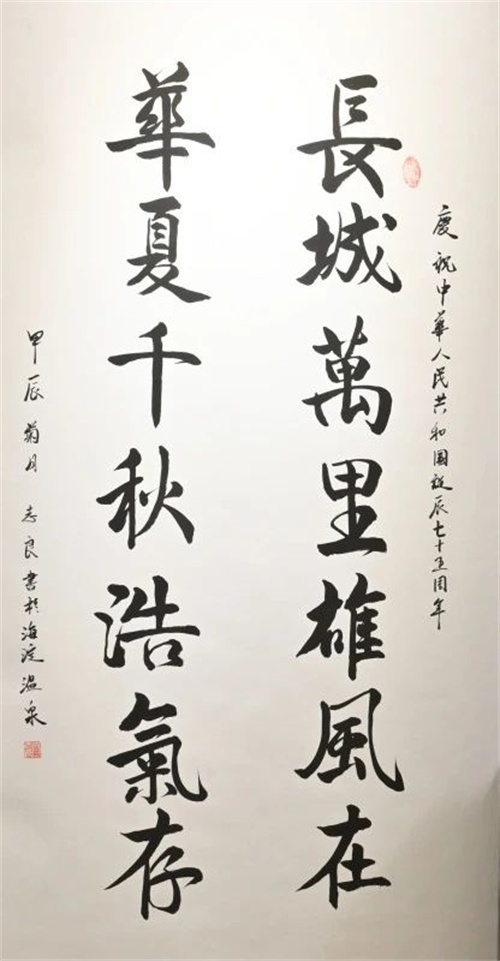 慶祝中華人民共和国誕辰七十五周年
長城萬里雄風在
華夏千秋浩氣存
甲辰菊月 志良書於海淀温泉